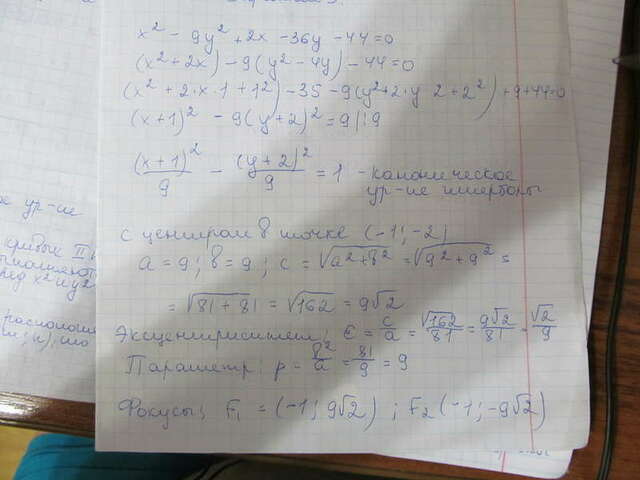 x² - 9y² + 2x - 36y - 44 = 0
(x² + 2x) - 9(y² - 4y) - 44 = 0
(x² + 2·x·1 + 1²) - 35 - 9(y² + 2·y·2 + 2²) + 9 + 44 = 0
(x+1)² - 9(y+2)² = 9 |:9
(x+1)²/9 - (y+2)²/9 = 1 - каноническое
ур-ие гиперболы
с центром в точке (-1; -2)
a = 9; b = 9; c = √a² + b² = √9² + 9² =
= √81 + 81 = √162 = 9√2
Эксцентриситет; ε = c/a = √162/81 = 9√2/81 = √2/9
Параметр: p = b²/a = 81/9 = 9
Фокусы; F₁ = (-1; 9√2); F₂ (-1; -9√2)
ур-ие
кривые II
x² и y²